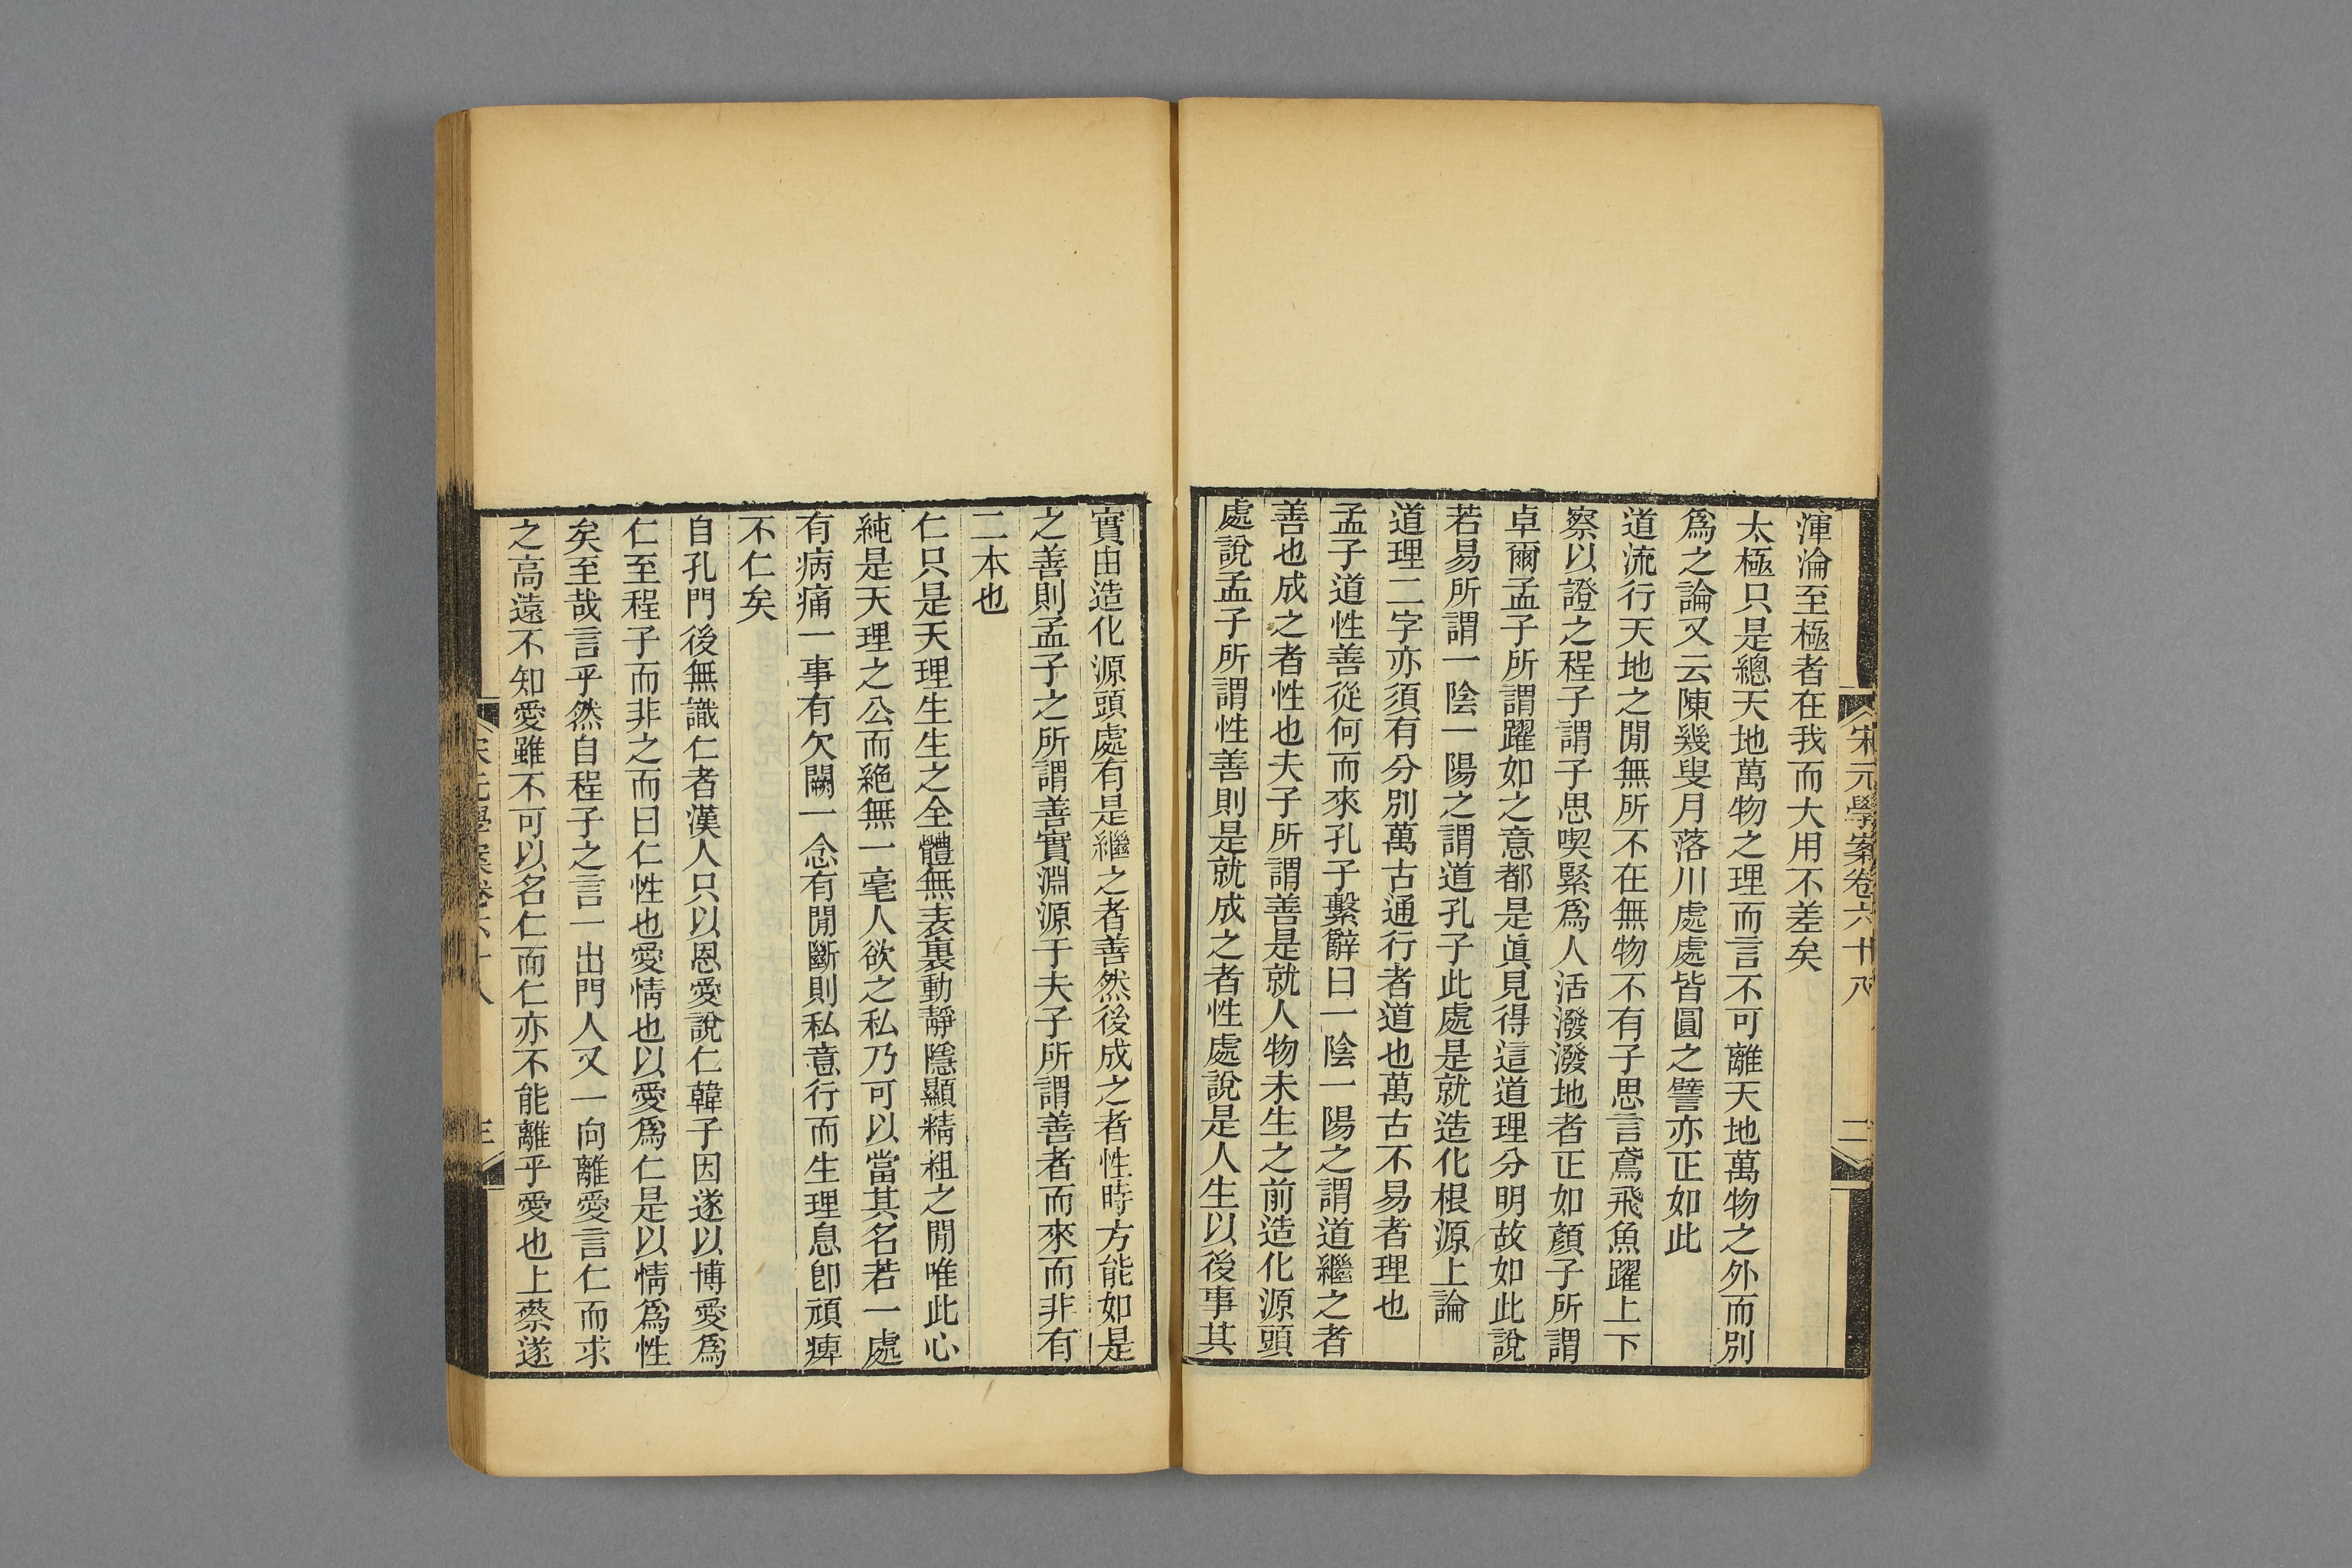 宋元學案卷六十八
二
渾淪至極者在我而大用不差矣
太極只是總天地萬物之理而言不可離天地萬物之外而別
爲之論又云陳幾叟月落川處處皆圓之譬亦正如此
道流行天地之閒無所不在無物不有子思言鳶飛魚躍上下
察以證之程子謂子思喫緊爲人活潑潑地者正如顏子所謂
卓爾孟子所謂躍如之意都是眞見得這道理分明故如此說
若易所謂一陰一陽之謂道孔子此處是就造化根源上論
道理二字亦須有分別萬古通行者道也萬古不易者理也
孟子道性善從何而來孔子繫辭曰一陰一陽之謂道繼之者
善也成之者性也夫子所謂善是就人物未生之前造化源頭
處說孟子所謂性善則是就成之者性處說是人生以後事其
實由造化源頭處有是繼之者善然後成之者性時方能如是
之善則孟子之所謂善實淵源于夫子所謂善者而來而非有
二本也
仁只是天理生生之全體無表裏動靜隱顯精粗之閒唯此心
純是天理之公而絶無一毫人欲之私乃可以當其名若一處
有病痛一事有欠闕一念有閒斷則私意行而生理息卽頑痺
不仁矣
自孔門後無識仁者漢人只以恩愛說仁韓子因遂以博愛爲
仁至程子而非之而曰仁性也愛情也以愛爲仁是以情爲性
矣至哉言乎然自程子之言一出門人又一向離愛言仁而求
之高遠不知愛雖不可以名仁而仁亦不能離乎愛也上蔡遂
宋元學案卷六十八
三